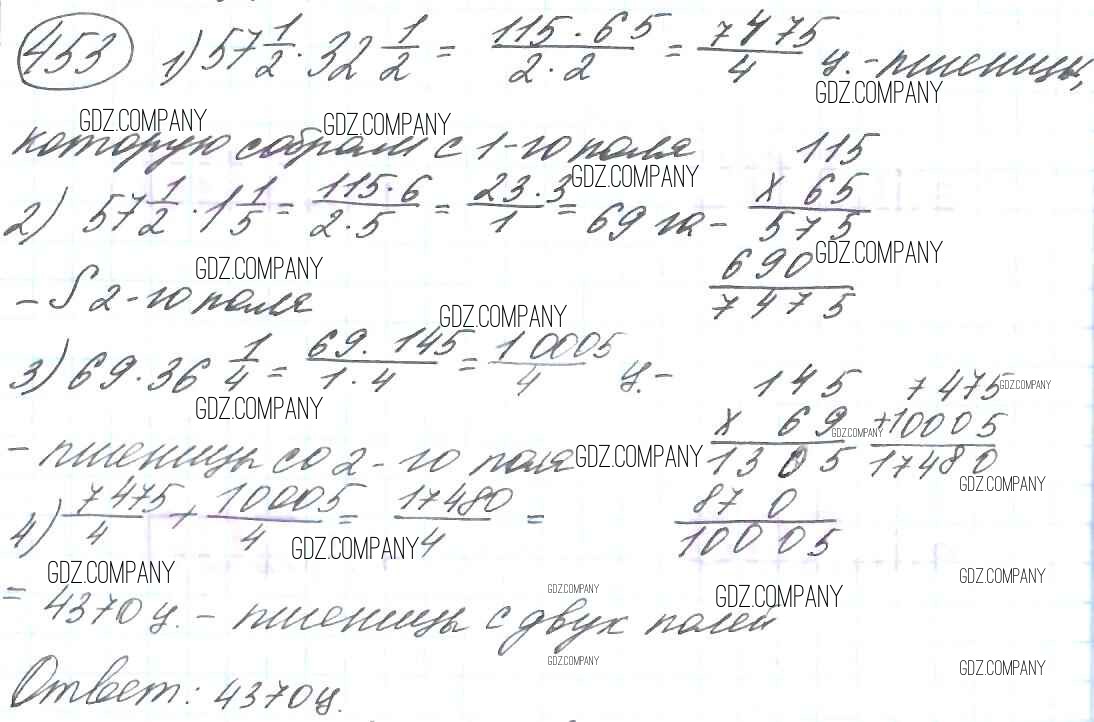 453 1) 57 1/2 · 32 1/2 = (115 · 65)/(2 · 2) = 7475/4 ц. - пшеницы,
GDZ.COMPANY
GDZ.COMPANY GDZ.COMPANY
которую собрали с 1-го поля 115
GDZ.COMPANY
2) 57 1/2 · 1 1/5 = (115 · 6)/(2 · 5) = (23 · 3)/1 = 69 га - × 65
575
GDZ.COMPANY GDZ.COMPANY
- S 2-го поля 690
7475
GDZ.COMPANY
3) 69 · 36 1/4 = (69 · 145)/(1 · 4) = 10005/4 ц. - 145 7475
GDZ.COMPANY
GDZ.COMPANY × 69 GDZ.COMPANY +10005
- пшеницы со 2-го поля GDZ.COMPANY 1305 17480
GDZ.COMPANY
4) 7475/4 + 10005/4 = 17480/4 = 870
10005
GDZ.COMPANY
GDZ.COMPANY GDZ.COMPANY
= 4370 ц. - пшеницы с двух полей
GDZ.COMPANY GDZ.COMPANY
GDZ.COMPANY GDZ.COMPANY
Ответ: 4370 ц.